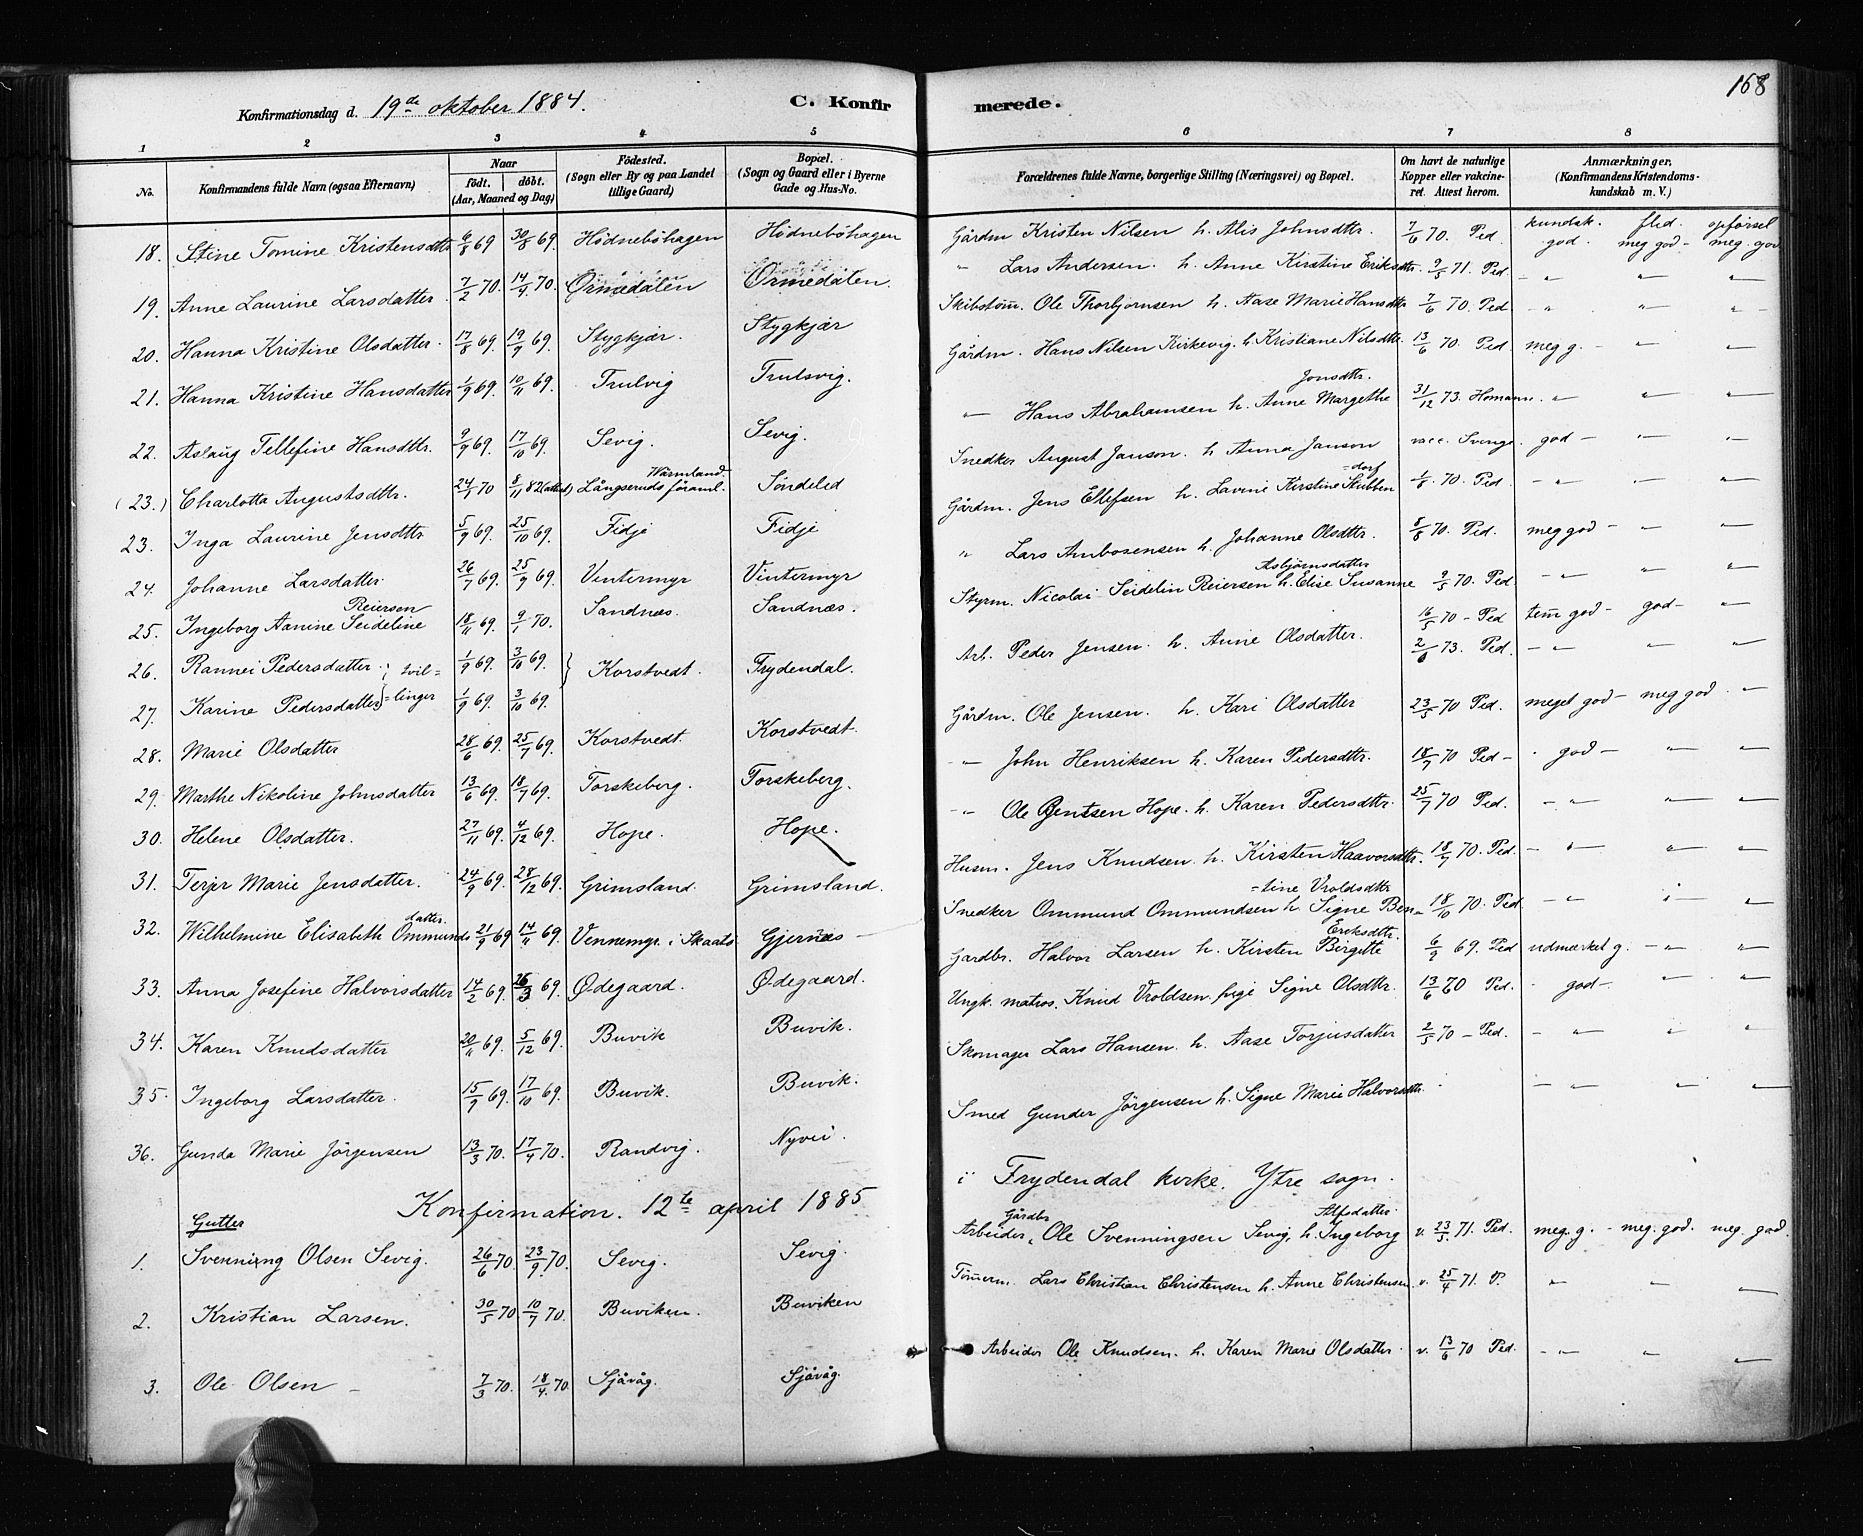 Konfirmationsdag d. 19de oktober 1884. C. Konfirmerede. 168
1 2 3 4 5 6 7 8
No. Konfirmandens fulde Navn (ogsaa Efternavn) Naar födt. döbt. (Aar, Maaned og Dag) Födested. (Sogn eller By og paa Landet tillige Gaard) Bopæl. (Sogn og Gaard eller i Byerne Gade og Hus-No. Forældrenes fulde Navne, borgerlige Stilling (Næringsvei) og Bopæl. Om havt de naturlige Kopper eller vakcineret. Attest herom. Anmærkninger, (Konfirmandens Kristendomskundskab m. V.)
kundsk. flid. opførsel
18. Stine Tomine Kristensdttr 6/8 69 30/8 69. Hödneböhagen Hödneböhagen Gårdm Kristen Nilsen h. Alis Johnsdttr. 7/6 70. Ped. god. meg god - meg. god
19. Anne Laurine Larsdatter 7/2 70. 14/4 70. Ørmedalen Ormedalen. " Lars Andersen. h. Anne Kirstine Eriksdttr. 9/5 71. Ped - " " "
20. Hanna Kristine Olsdatter. 17/8 69. 19/9 69. Stygkjær. Stygkjær Skibstöm. Ole Thorbjørnsen h. Aase Marie Hansdttr 7/6 70. Ped. - " " "
21. Hanna Kristine Hansdatter 1/9 69. 10/11 69. Trulvig Trulsvig. Gårdm. Hans Nilsen Kirkevig. h. Kristiane Nilsdttr. 13/6 70. Ped. meg g. - " "
22. Aslaug Tellefine Hansdttr. 9/9 69. 17/10 69. Sevig. Sevig. " Hans Abrahamsen h. Anne Margethe Jonsdttr. 31/12 73. Homann. " " "
(23.) Charlotta Augustsdttr. 24/1 70 8/11 82 (attest) Långseruds föraml. Wärmland Söndeled Snedker August Janson. h. Anna Janson vacc. Sverige. god - " "
23. Inga Laurine Jensdttr 5/9 69. 25/10 69. Fidje Fidje Gårdm. Jens Ellefsen h. Lavine Kirstine Skibben=dorf 1/8. 70. Ped. - " " "
24. Johanne Larsdatter. 26/7 69. 25/9 69. Vintermyr Vintermyr " Lars Ambosensen h. Johanne Olsdttr. 8/8 70. Ped. meg god - " "
25. Ingeborg Aanine Seideline Reiersen 18/11 69. 9/1 70. Sandnæs. Sandnæs. Styrm. Nicolai Seidelin Reiersen h. Elise Susanne Asbjørnsdatter 9/5 70. Ped. - " " "
26. Rannei Pedersdatter. } tvil= 1/9 69. 3/10 69. } Korstvedt. Frydendal. Arb. Peder Jensen. h. Anne Olsdatter. 16/5 70 - Ped tem god - god - "
27. Karine Pedersdatter } =linger 1/9 69. 3/10 69. 2/6 73. Ped. - " " "
28. Marie Olsdatter 28/6 69. 25/7 69. Korstvedt. Korstvedt. Gårdm. Ole Jensen. h. Kari Olsdatter 23/5 70 Ped. meget god - meg god. "
29. Marthe Nikoline Johnsdatter 13/6 69. 18/7 69. Torskeberg. Torskeberg. " John Henriksen h. Karen Pedersdttr. 18/7 70 Ped - god - " "
30. Helene Olsdatter. 27/11 69. 4/12 69. Hope. Hope. " Ole Bentsen Hope. h. Karen Pedersdttr. 25/7 70 Ped. - " " "
31. Terjer Marie Jensdatter. 24/9 69. 28/12 69. Grimsland. Grimsland. Husm. Jens Knudsen. h. Kirsten Haavorsdttr. 18/7 70. Ped. - " " "
32. Wilhelmine Elisabeth Ommundsdatter. 21/9 69 14/11 69. Vennemyr i Skaatö Gjernæs - Snedker Ommund Ommundsen h. Signe Ben=tine Vroldsdttr 18/10 70. Ped. - " " "
33. Anna Josefine Halvorsdatter 14/2 69. 26/3 69. Ødegaard. Ødegaard. Gardbr. Halvor Larsen h. Kirsten Birgitte Eriksdttr. 6/9 69. Ped udmærket g. - " "
34. Karen Knudsdatter 20/11 69. 5/12 69. Buvik Buvik. Ungk. matros. Knud Vroldsen. pige Signe Olsdttr. 13/6 70 Ped. - god - " "
35. Ingeborg Larsdatter. 15/9 69. 17/10 69. Buvik. Buvik. Skomager Lars Hansen h. Aase Torjusdatter 2/5 70 - Ped. - " " "
36. Gunda Marie Jörgensen 13/3 70. 17/4 70. Randvig. Nyvei. Smed Gunder Jörgensen h. Signe Marie Halvorsdttr. - " " "
Konfirmation. 12te april 1885 i Frydendal kirke. Ytre sogn.
Gutter
1. Svenning Olsen Sevig. 26/6 70 23/9 70. Sevig. Sevig. Arbeider, Gårdbr Ole Svenningsen Sevig, h. Ingeborg Alfsdatter. v. 23/5. 71. Ped. meg. g. - meg. god. meg. god.
2. Kristian Larsen. 30/5 70. 10/7 70. Buviken. Buviken Tömerm. Lars Christian Christensen h. Anne Christensen. v. 25/4 71. P. " " "
3. Ole Olsen - 7/3 70. 18/4 70. Sjåvåg. Sjåvåg. Arbeider Ole Knudsen. h. Karen Marie Olsdatter. v. 13/6 70 Ped. - " " "